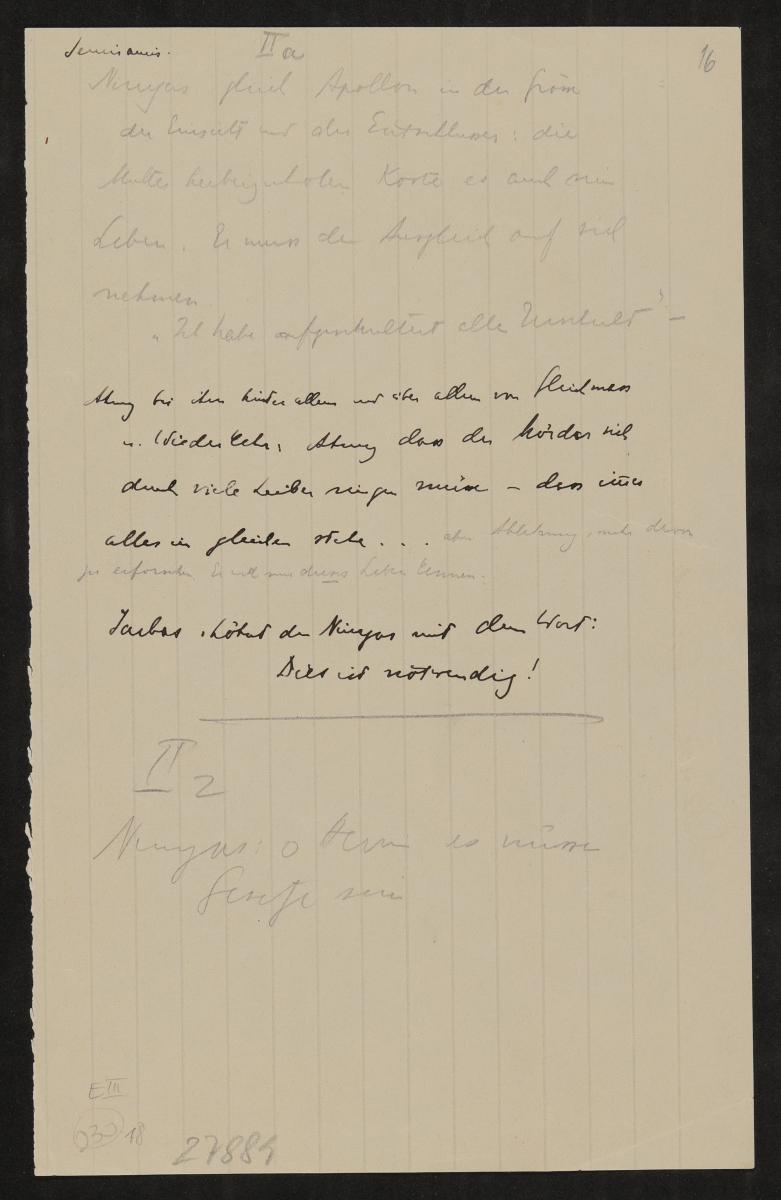 Semiramis. II a 16
Ninyas gleich Apollon in der Grösse
der Einsicht und des Entschlusses: die
Mutter herbeizuholen Koste es auch sein
Leben. Er muss den Ausgleich auf sich
nehmen.
„Ich habe aufgeschultert alle Unschuld" –
Ahnung bei ihm hinter allem und über allem von Gleichmass
u. Wiederkehr, Ahnung dass der Mörder sich
durch viele Leiber ringen müsse – dass immer
alles im gleichen stehe . . . aber Ablehnung, mehr davon
zu erforschen. Er will nur dieses Leben kennen.
Jarbas höhnt den Ninyas mit dem Wort:
Dies ist notwendig!
II 2
Ninyas: o Herrin es müssen
Gesetze sein
E III
18
27884